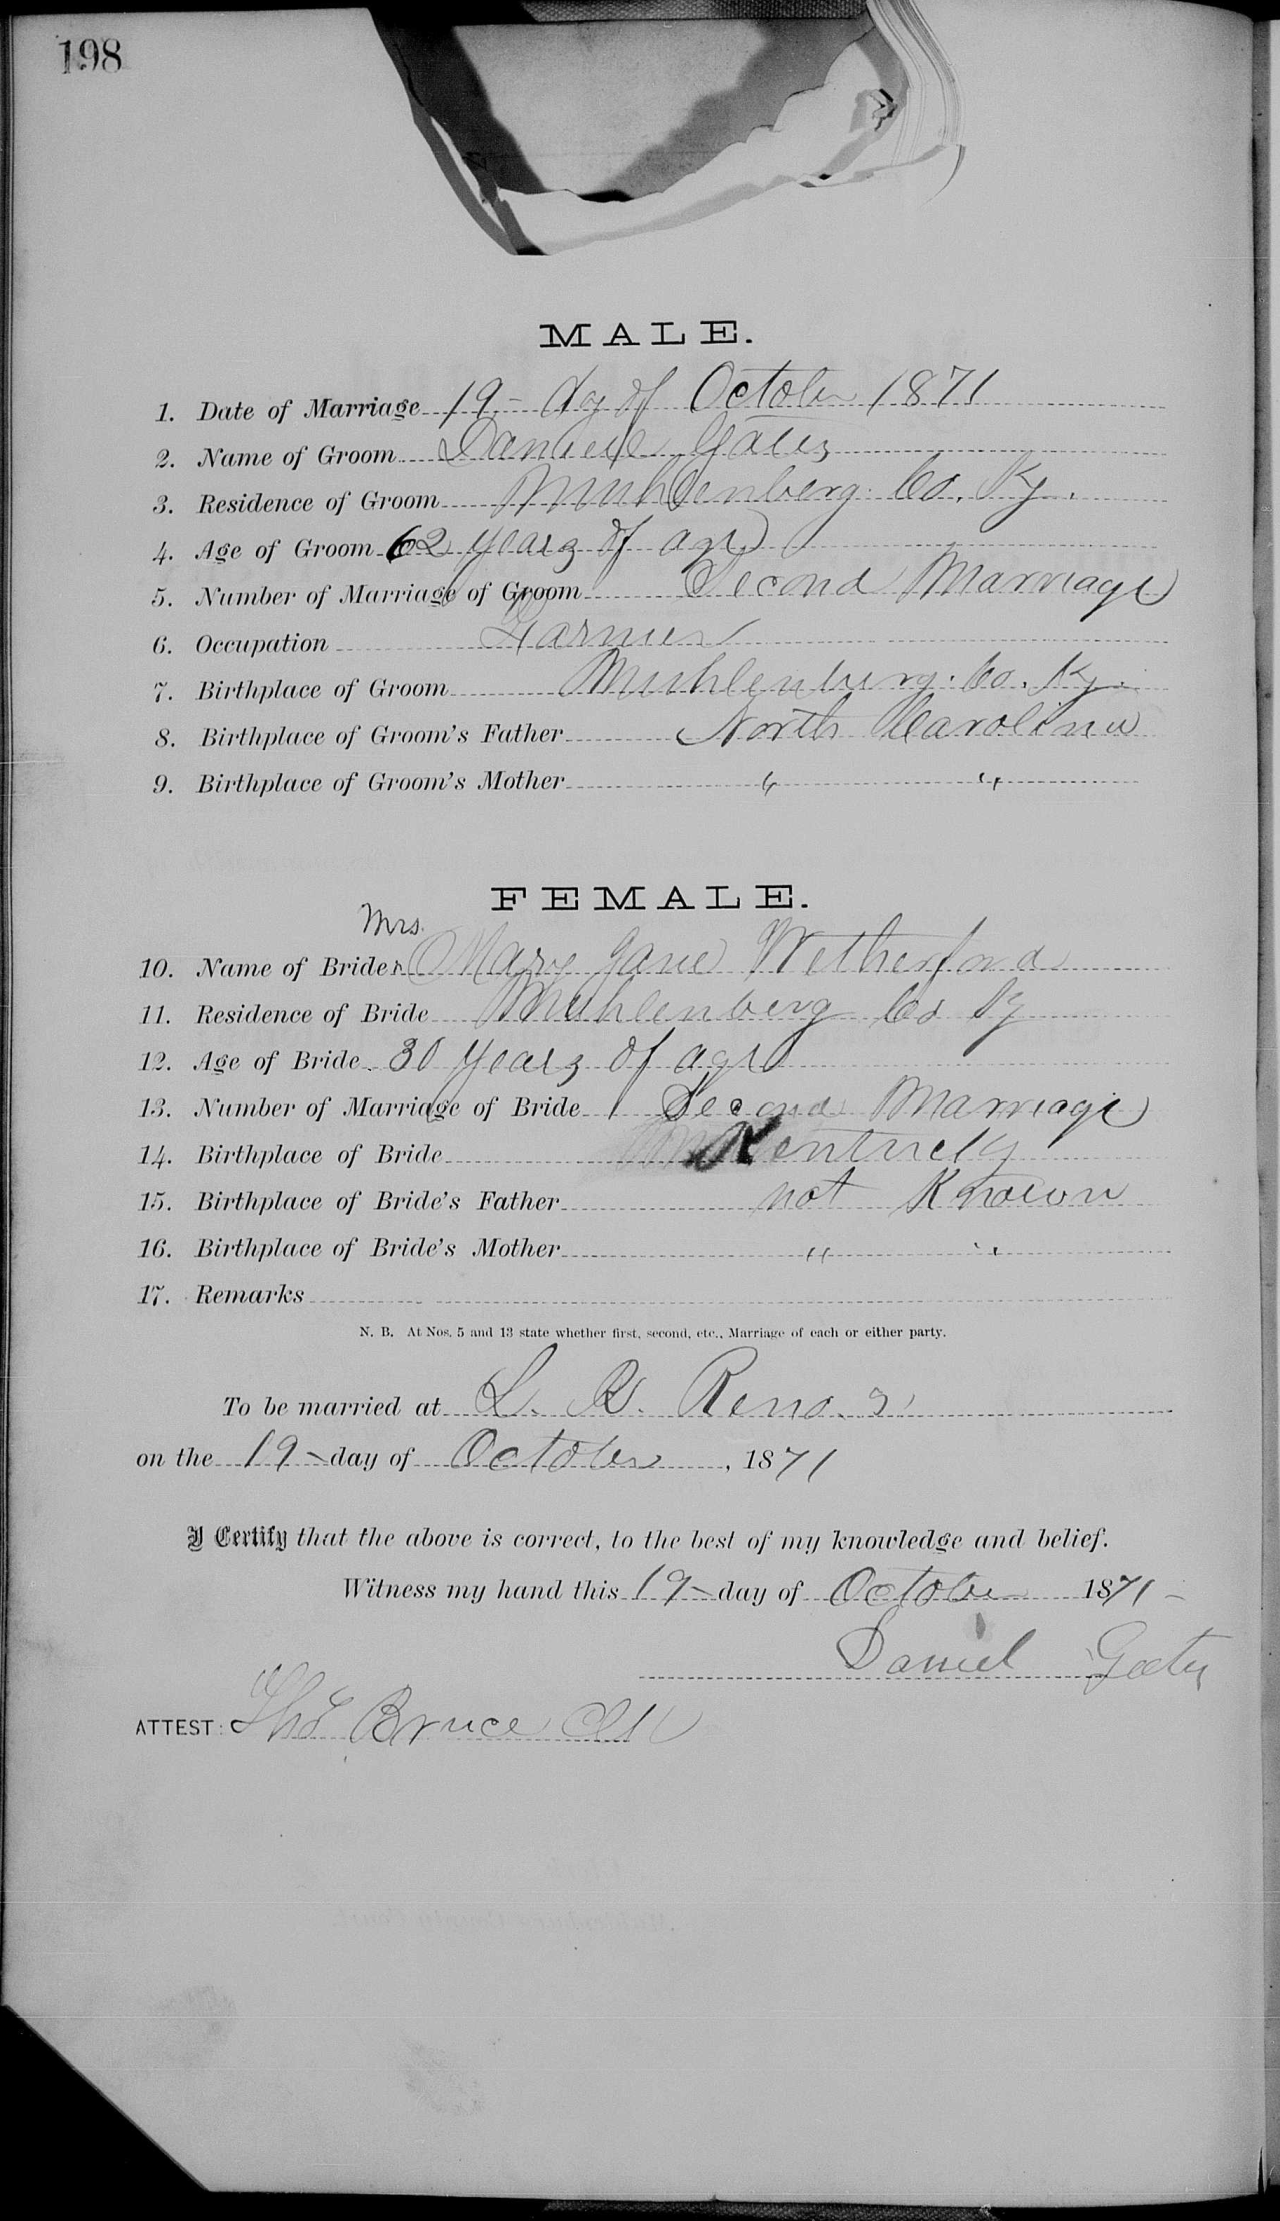 198
MALE.
1. Date of Marriage 19- day of October 1871
2. Name of Groom Daniel Gates
3. Residence of Groom Muhlenberg Co. Ky.
4. Age of Groom 62 years of age
5. Number of Marriage of Groom Second Marriage
6. Occupation Farmer
7. Birthplace of Groom Muhlenburg. Co. Ky.
8. Birthplace of Groom's Father North Carolina
9. Birthplace of Groom's Mother " "
FEMALE.
Mrs.
10. Name of Bride Mary Jane Wetherford
11. Residence of Bride Muhlenberg Co Ky
12. Age of Bride 30 years of age
13. Number of Marriage of Bride Second Marriage
14. Birthplace of Bride Kentucky
15. Birthplace of Bride's Father not Known
16. Birthplace of Bride's Mother " "
17. Remarks
N. B. At Nos. 5 and 13 state whether first, second, etc., Marriage of each or either party.
To be married at L. Reno.s
on the 19- day of October, 1871
I Certify that the above is correct, to the best of my knowledge and belief.
Witness my hand this 19- day of October 1871-
Daniel Gates
ATTEST: Ths Bruce Clk